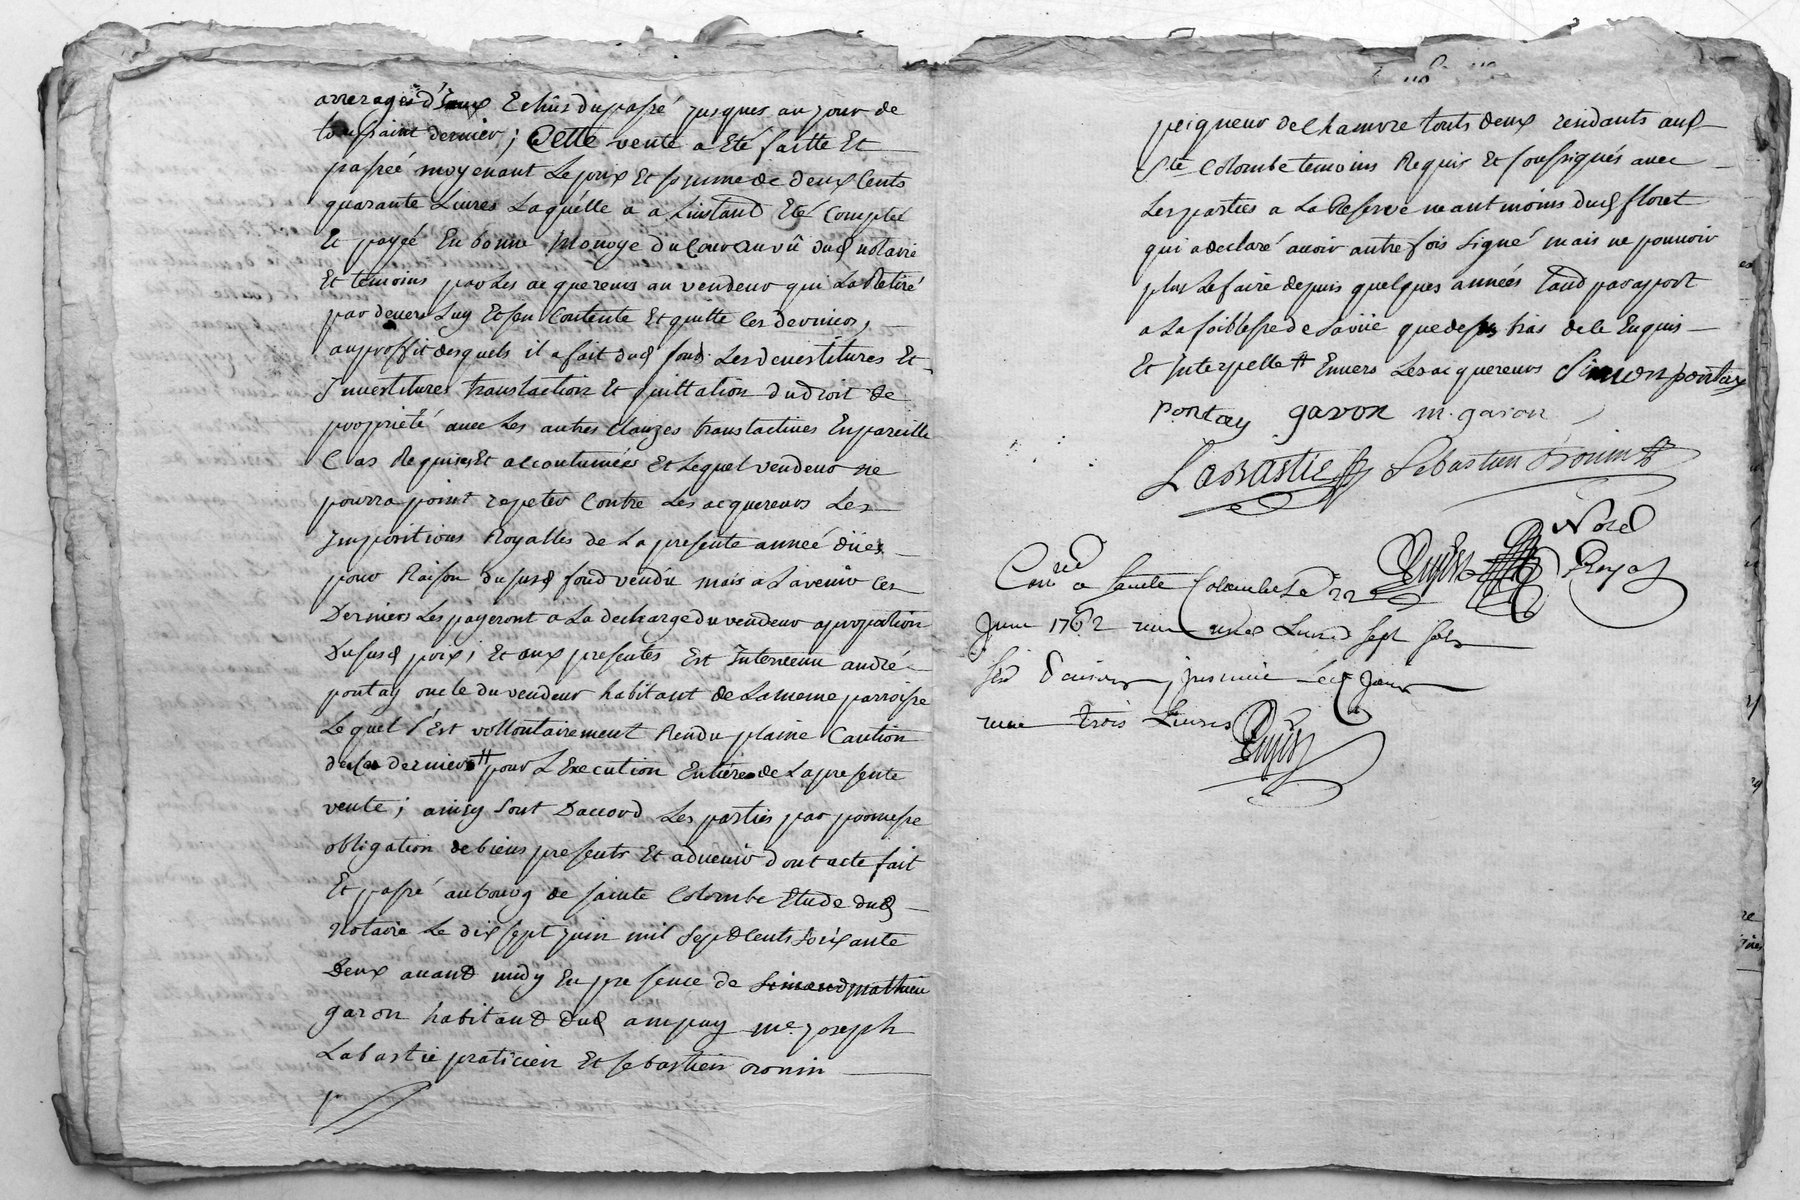 arrerages d'iceux Echûs du passé jusques au jour de
toussaint dernier; Cette vente a Eté faitte Et
passée moyénant Le prix Et somme de deux Cents
quarante Livres Laquélle a a Linstant Eté Comptée
Et payée En bonne Monoye du Cour au vû dud notaire
Et temoins par Les acquereurs au vendeur qui La Retiré
par devers Luy Et sen Contente Et quitte Ces derniers,
au proffit desquels il a fait dud fond Les devestitures Et
Investitures translaction Et quittation du droit de
proprieté avec Les autres Clauzes translactives En pareille
Cas Requises Et accoutumées Et Lequel vendeur ne
pourra point repeter Contre Les acquereurs Les
Impositions Royalles de La presente année dües
pour Raison du susd fond vendu mais a Lavenir Ces
Derniers Les payeront a La decharge du vendeur a propotion
Du susd prix; Et aux presentes Est Intervenu andré
pontay oncle du vendeur habitant de La meme parroisse
Lequel s'Est vollontairement Rendu plaine Caution
de Ce dernier # pour LExecution Entiére de La presente
vente; ainsy sont Daccord Les parties par promesse
obligation de biens presents Et advenir dont acte fait
Et passé au bourg de sainte Colombe Etude dud
Notaire Le dix sept juin mil sept Cents soixante
Deux avant midy En presence de mathieu
garon habitant dud ampuy me. joseph
Labastie praticien Et sebastien dronin
peigneur de Chamvre touts deux residants aud
Ste Colombe temoins Requis Et soussignés avec
Les parties a La Reserve neantmoins dud floret
qui a declaré avoir autre fois signé mais ne pouvoir
plus Le faire depuis quelques années tand par aport
a La foiblesse de sa vüe que de ses bras de ce Enquis
Et Interpellé # Envers Les acquereurs Simon pontay
pontay garon m. garon
LABASTIE Sebastien Dronin
Noté
Royal
Con. a Sainte Colombe Le 22
Juin 1762 reçu Livres sept sols
six deniers
reçu trois Livres